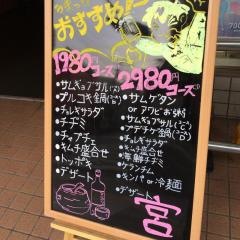 おすすめ
1980円コース
・サムギョプサル(ス)
・プルコギ鍋(うどん)
・チョレギサラダ
・チヂミ
・チャプチェ
・キムチ盛合せ
・トッポキ
・デザート
2980円コース
・サムゲタン
or アワビお粥
・サムギョプサル
・プデチゲ鍋
・チョレギサラダ
・キムチ盛合せ
・海鮮チヂミ
・ケランチム
・キンパ or 冷麺
・デザート
宮